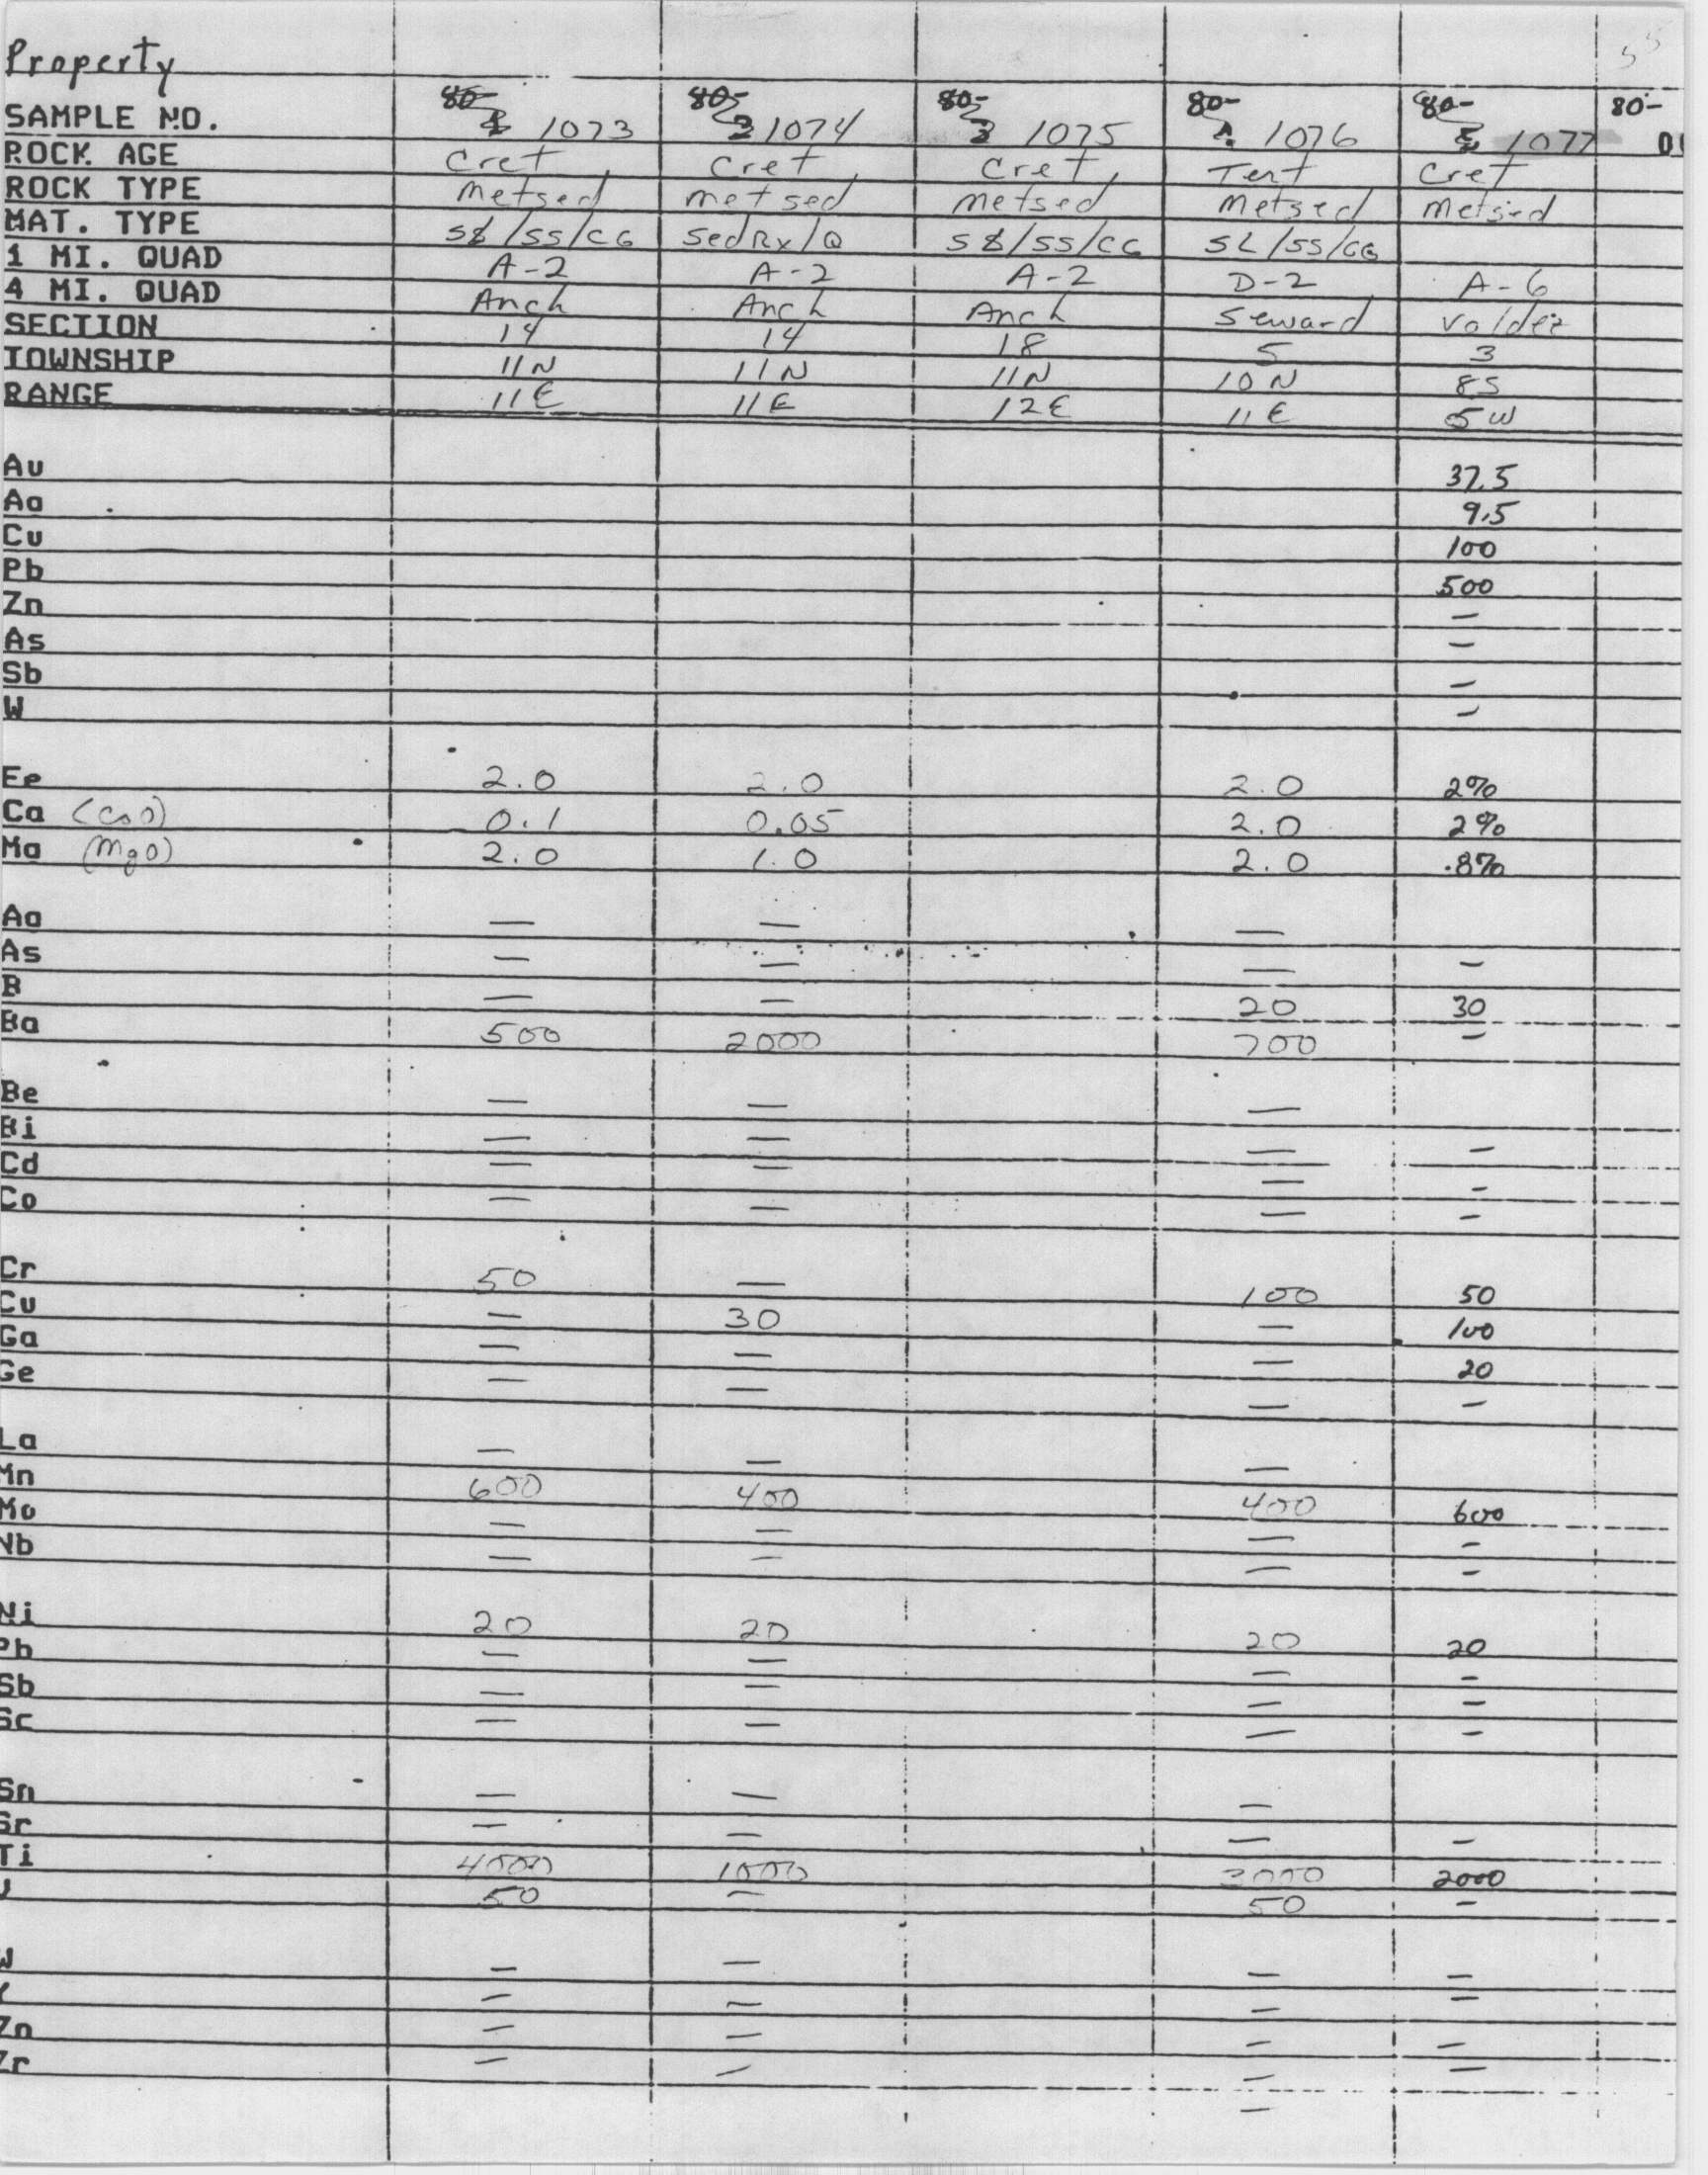 Property
SAMPLE NO. 80- 1073 80- 1074 80- 1075 80- 1076 80- 1077 80-
ROCK AGE Cret Cret Cret Tert Cret
ROCK TYPE Metsed Metsed Metsed Metsed Metsed
MAT. TYPE SL/SS/CG SedRx/Q SL/SS/CG SL/SS/CG
1 MI. QUAD A-2 A-2 A-2 D-2 A-6
4 MI. QUAD Anch Anch Anch Seward Valdez
SECTION 14 14 18 5 3
TOWNSHIP 11N 11N 11N 10N 8S
RANGE 11E 11E 12E 11E 5W
Au 37.5
Ag 9.5
Cu 100
Pb 500
Zn —
As —
Sb —
W —
Fe 2.0 2.0 2.0 2%
Ca (CaO) 0.1 0.05 2.0 2%
Mg (MgO) 2.0 1.0 2.0 .8%
Ag — — —
As — — — —
B — — 20 30
Ba 500 2000 700 —
Be — — —
Bi — — — —
Cd — — — —
Co — — — —
Cr 50 — 100 50
Cu — 30 — 100
Ga — — — 20
Ge — — — —
La — — —
Mn 600 400 400 600
Mo — — — —
Nb — — — —
Ni 20 20 20 20
Pb — — — —
Sb — — — —
Sc — — — —
Sn — — —
Sr — — — —
Ti 4000 1000 3000 2000
V 50 — 50 —
W — — — —
Y — — — —
Zn — — — —
Zr — — — —
—